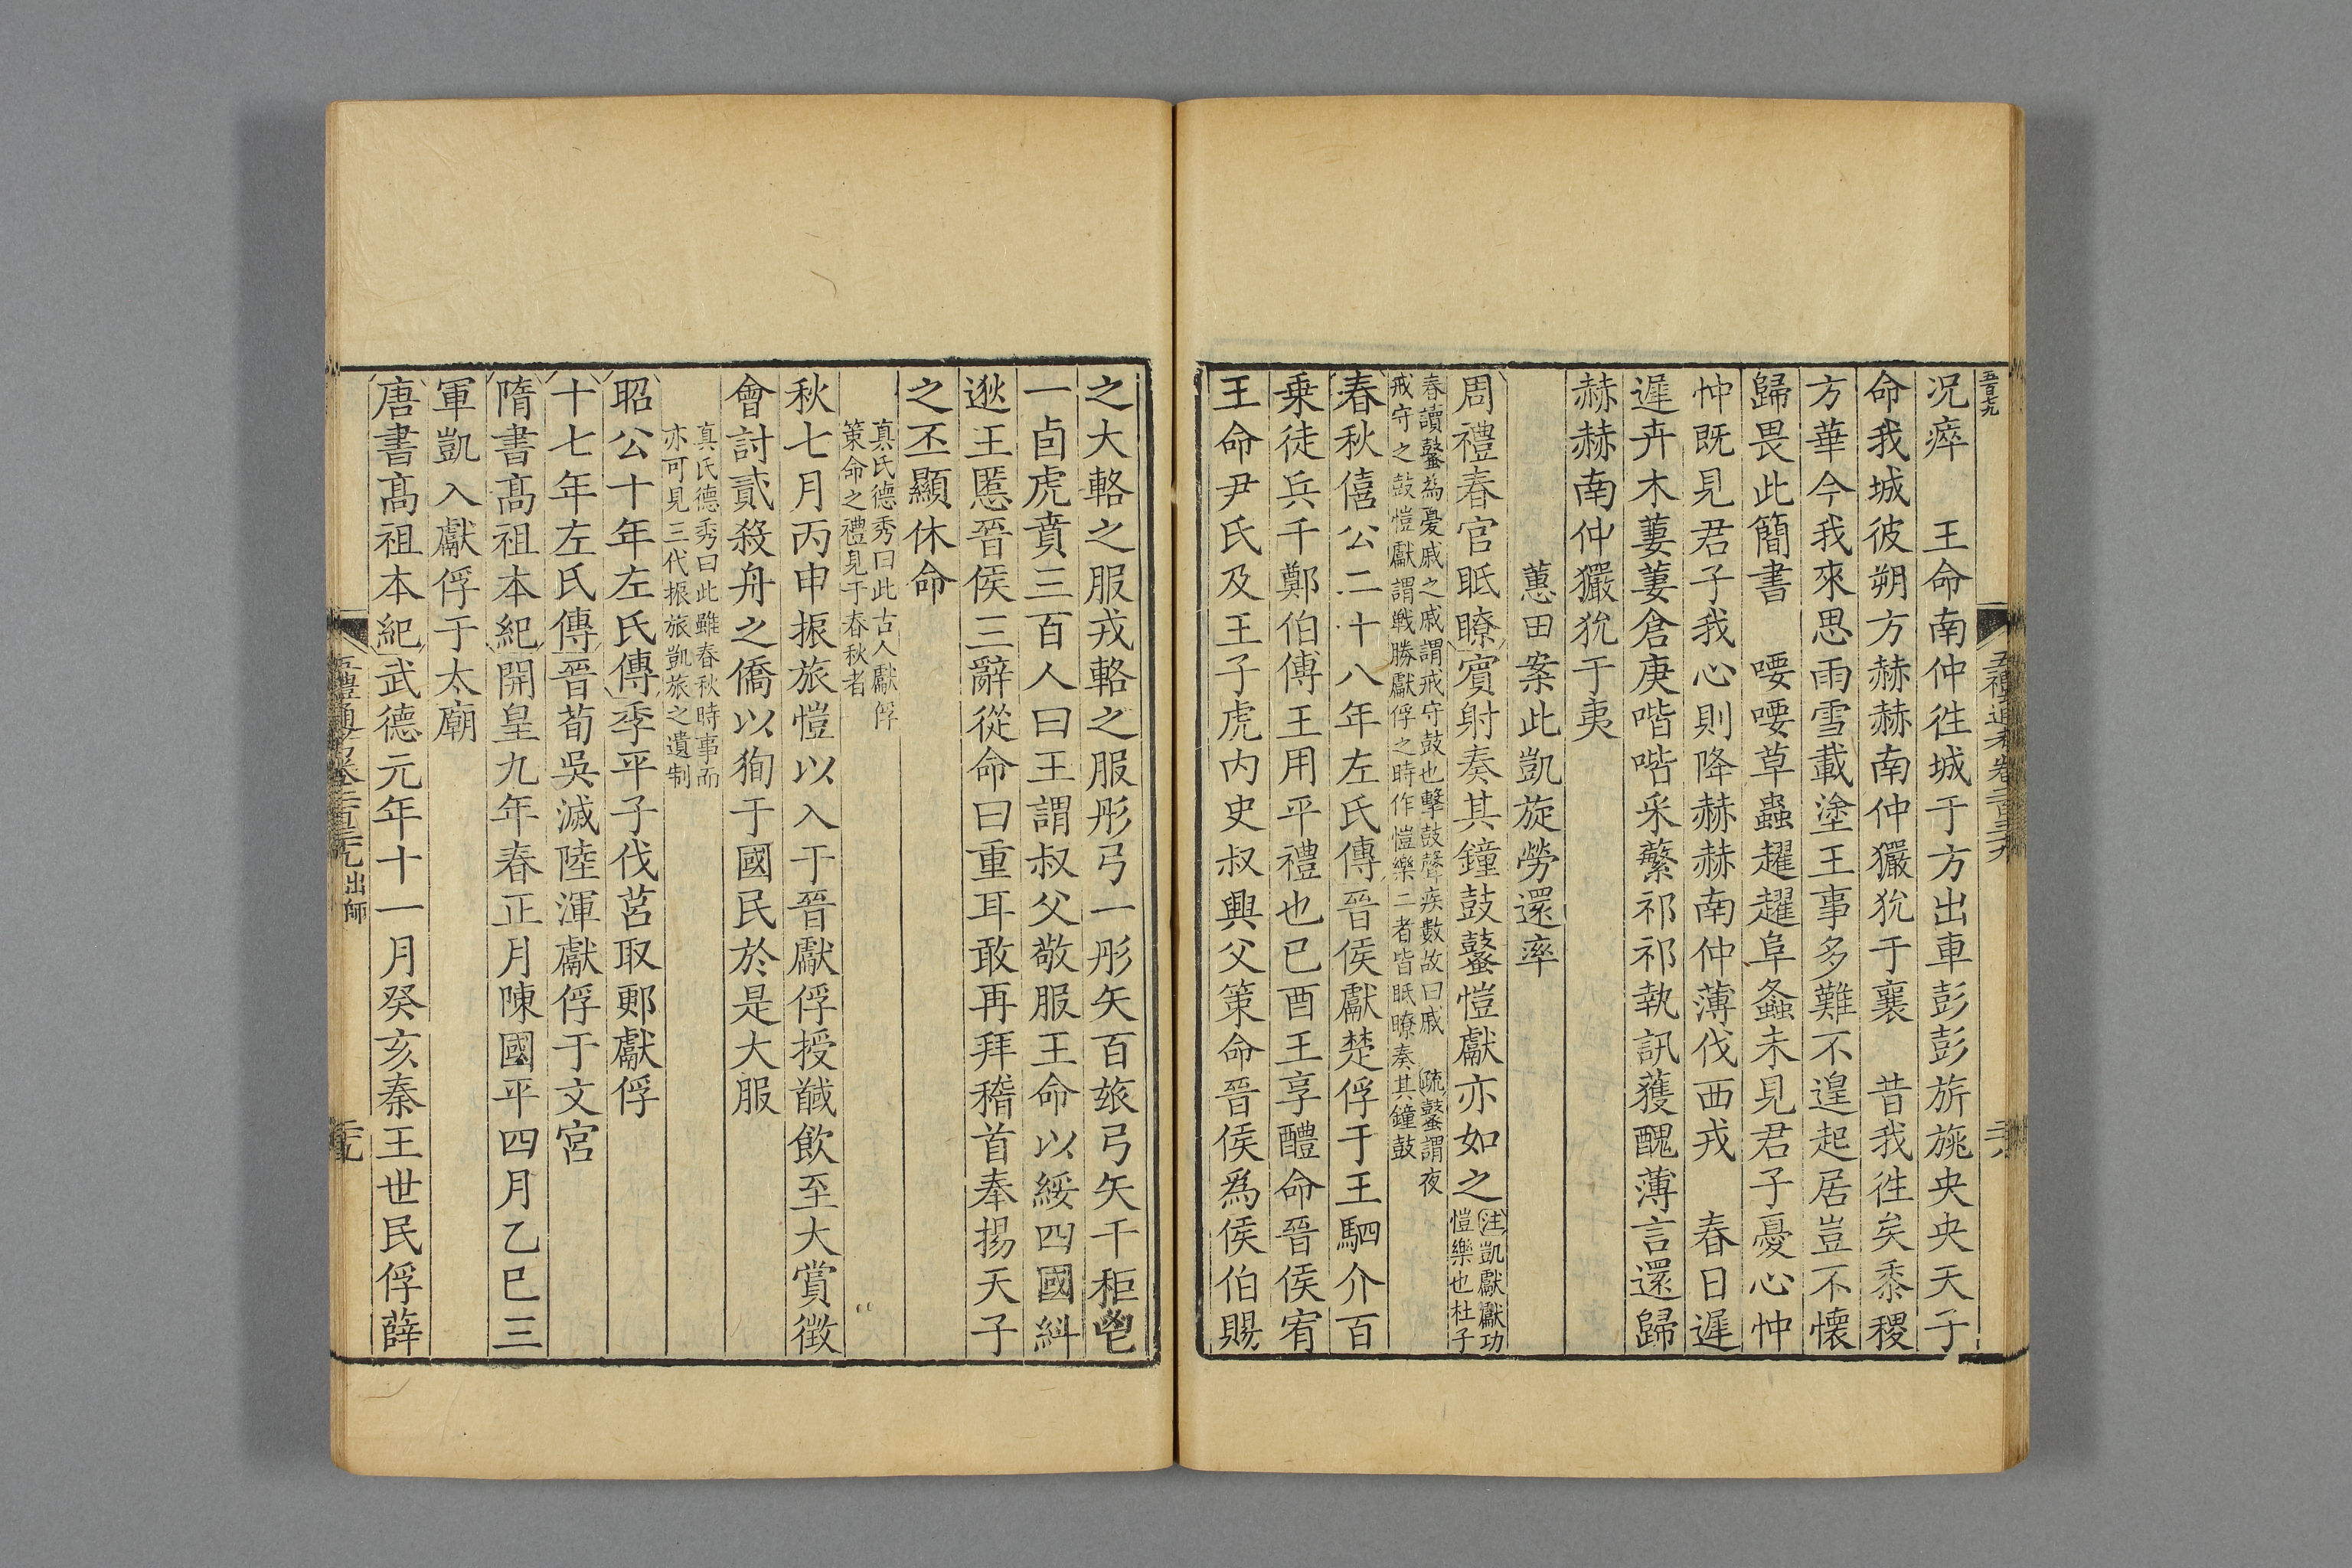 况瘁　王命南仲徃城于方出車彭彭旂旐央央天子
命我城彼朔方赫赫南仲玁狁于襄　昔我徃矣黍稷
方華今我來思雨雪載塗王事多難不遑起居豈不懷
歸畏此簡書　喓喓草蟲趯趯阜螽未見君子憂心忡
忡既見君子我心則降赫赫南仲薄伐西戎　春日遲
遲卉木萋萋倉庚喈喈采蘩祁祁執訊獲醜薄言還歸
赫赫南仲玁狁于夷
蕙田案此凱旋勞還率
周禮春官眡瞭賔射奏其鐘鼓鼜愷獻亦如之
注凱獻獻功
愷樂也杜子
春讀鼜為憂戚之戚謂戒守鼓也擊鼓聲疾數故曰戚　疏鼜謂夜
戒守之鼓愷獻謂戰勝獻俘之時作愷樂二者皆眡瞭奏其鐘鼓
春秋僖公二十八年左氏傳晉侯獻楚俘于王駟介百
乗徒兵千鄭伯傅王用平禮也已酉王享醴命晉侯宥
王命尹氏及王子虎内史叔興父策命晉侯為侯伯賜
之大輅之服戎輅之服彤弓一彤矢百玈弓矢千秬鬯
一卣虎賁三百人曰王謂叔父敬服王命以綏四國糾
逖王慝晉侯三辭從命曰重耳敢再拜稽首奉揚天子
之丕顯休命
真氏德秀曰此古人獻俘
策命之禮見于春秋者
秋七月丙申振旅愷以入于晉獻俘授馘飲至大賞徴
會討貳殺舟之僑以狥于國民於是大服
真氏德秀曰此雖春秋時事而
亦可見三代振旅凱旅之遺制
昭公十年左氏傳季平子伐莒取郠獻俘
十七年左氏傳晉荀吳滅陸渾獻俘于文宮
隋書髙祖本紀開皇九年春正月陳國平四月乙巳三
軍凱入獻俘于太廟
唐書髙祖本紀武德元年十一月癸亥秦王世民俘薛
出師